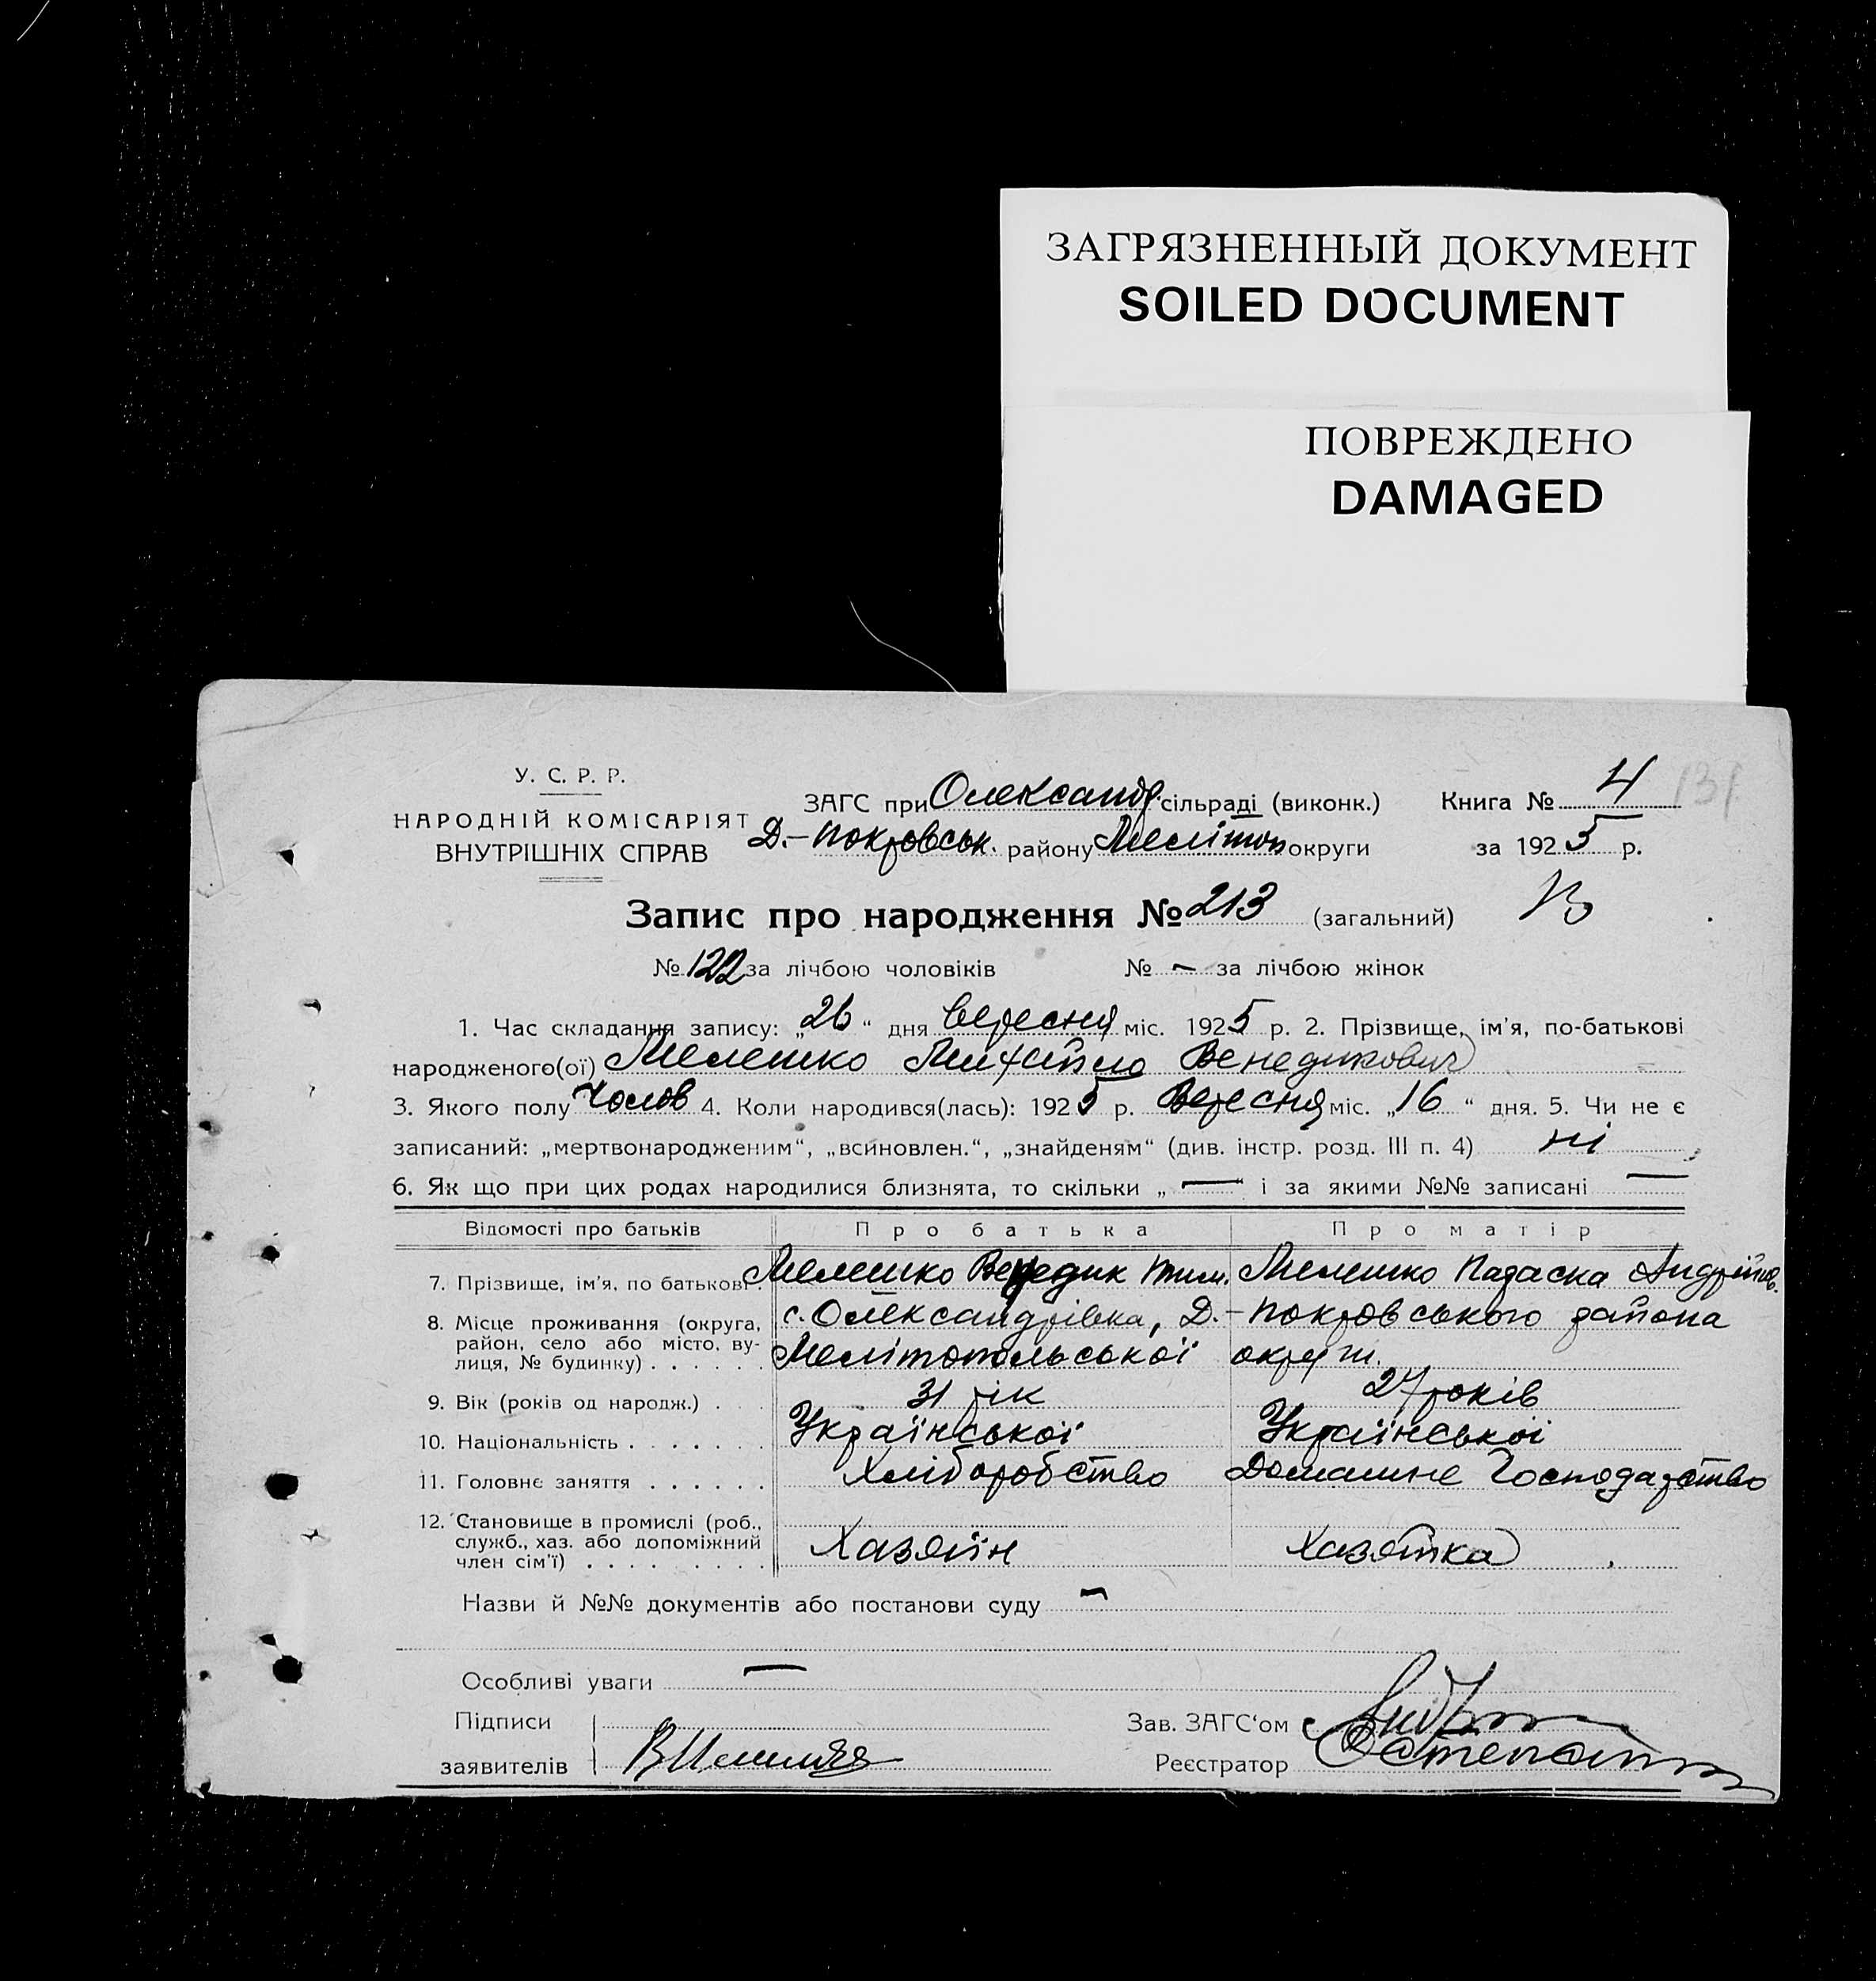 ЗАГРЯЗНЕННЫЙ ДОКУМЕНТ
SOILED DOCUMENT
ПОВРЕЖДЕНО
DAMAGED
У. С. Р. Р.
НАРОДНІЙ КОМІСАРІЯТ
ВНУТРІШНІХ СПРАВ
ЗАГС при Олександр. сільраді (виконк.) Книга № 4 131
Д.-Покровськ. району Мелітоп округи за 1925 р.
Запис про народження № 213 (загальний)
№ 122 за лічбою чоловіків № - за лічбою жінок
1. Час складання запису: „26“ дня вересня міс. 1925 р. 2. Прізвище, ім'я, по-батькові
народженого(ої) Мелешко Михайло Венедикович
3. Якого полу Чолов 4. Коли народився(лась): 1925 р. Вересня міс. „16“ дня. 5. Чи не є
записаний: „мертвонародженим“, „всиновлен.“, „знайденям“ (див. інстр. розд. III п. 4) ні
6. Як що при цих родах народилися близнята, то скільки „—“ і за якими №№ записані —
Відомості про батьків Про батька Про матір
7. Прізвище, ім'я, по батькові. Мелешко Венедик Тим. Мелешко Параска Андріїв.
8. Місце проживання (округа, с. Олександрівка, Д.-Покровського района
район, село або місто, ву-
лиця, № будинку) . . . . . . Мелітопольської округи.
9. Вік (років од народж.) . . 31 рік 27 років
10. Національність . . . . . . Української Української
11. Головне заняття . . . . . . Хліборобство Домашне Господарство
12. Становище в промислі (роб.,
служб., хаз. або допоміжний Хазяїн Хазяйка
член сім'ї) . . . . . . . . .
Назви й №№ документів або постанови суду -
Особливі уваги —
Підписи Зав. ЗАГС'ом
заявителів Реєстратор